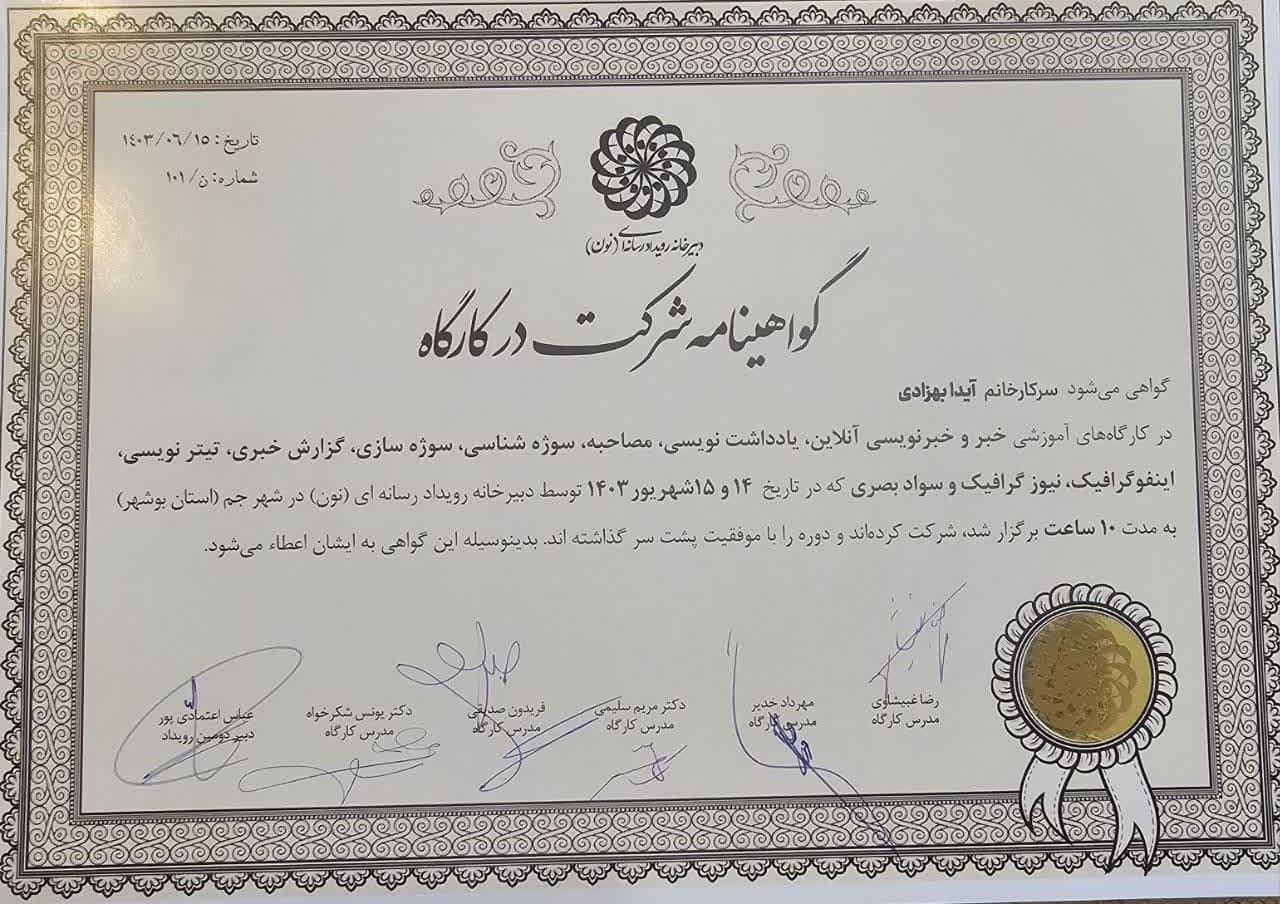 تاریخ: ۱۴۰۳/۰۶/۱۵
شماره: ن/۱۰۱
دبیرخانه رویداد رسانه‌ای (نون)
گواهینامه شرکت در کارگاه
گواهی می‌شود سرکارخانم آیدا بهزادی
در کارگاه‌های آموزشی خبر و خبرنویسی آنلاین، یادداشت نویسی، مصاحبه، سوژه شناسی، سوژه سازی، گزارش خبری، تیتر نویسی،
اینفوگرافیک، نیوز گرافیک و سواد بصری که در تاریخ ۱۴ و ۱۵شهریور۱۴۰۳ توسط دبیرخانه رویداد رسانه ای (نون) در شهر جم (استان بوشهر)
به مدت ۱۰ ساعت برگزار شد، شرکت کرده‌اند و دوره را با موفقیت پشت سر گذاشته اند. بدینوسیله این گواهی به ایشان اعطاء می‌شود.
رضا غبیشاوی
مدرس کارگاه
مهرداد خدیر
مدرس کارگاه
دکتر مریم سلیمی
مدرس کارگاه
فریدون صدیقی
مدرس کارگاه
دکتر یونس شکرخواه
مدرس کارگاه
عباس اعتمادی پور
دبیر دومین رویداد